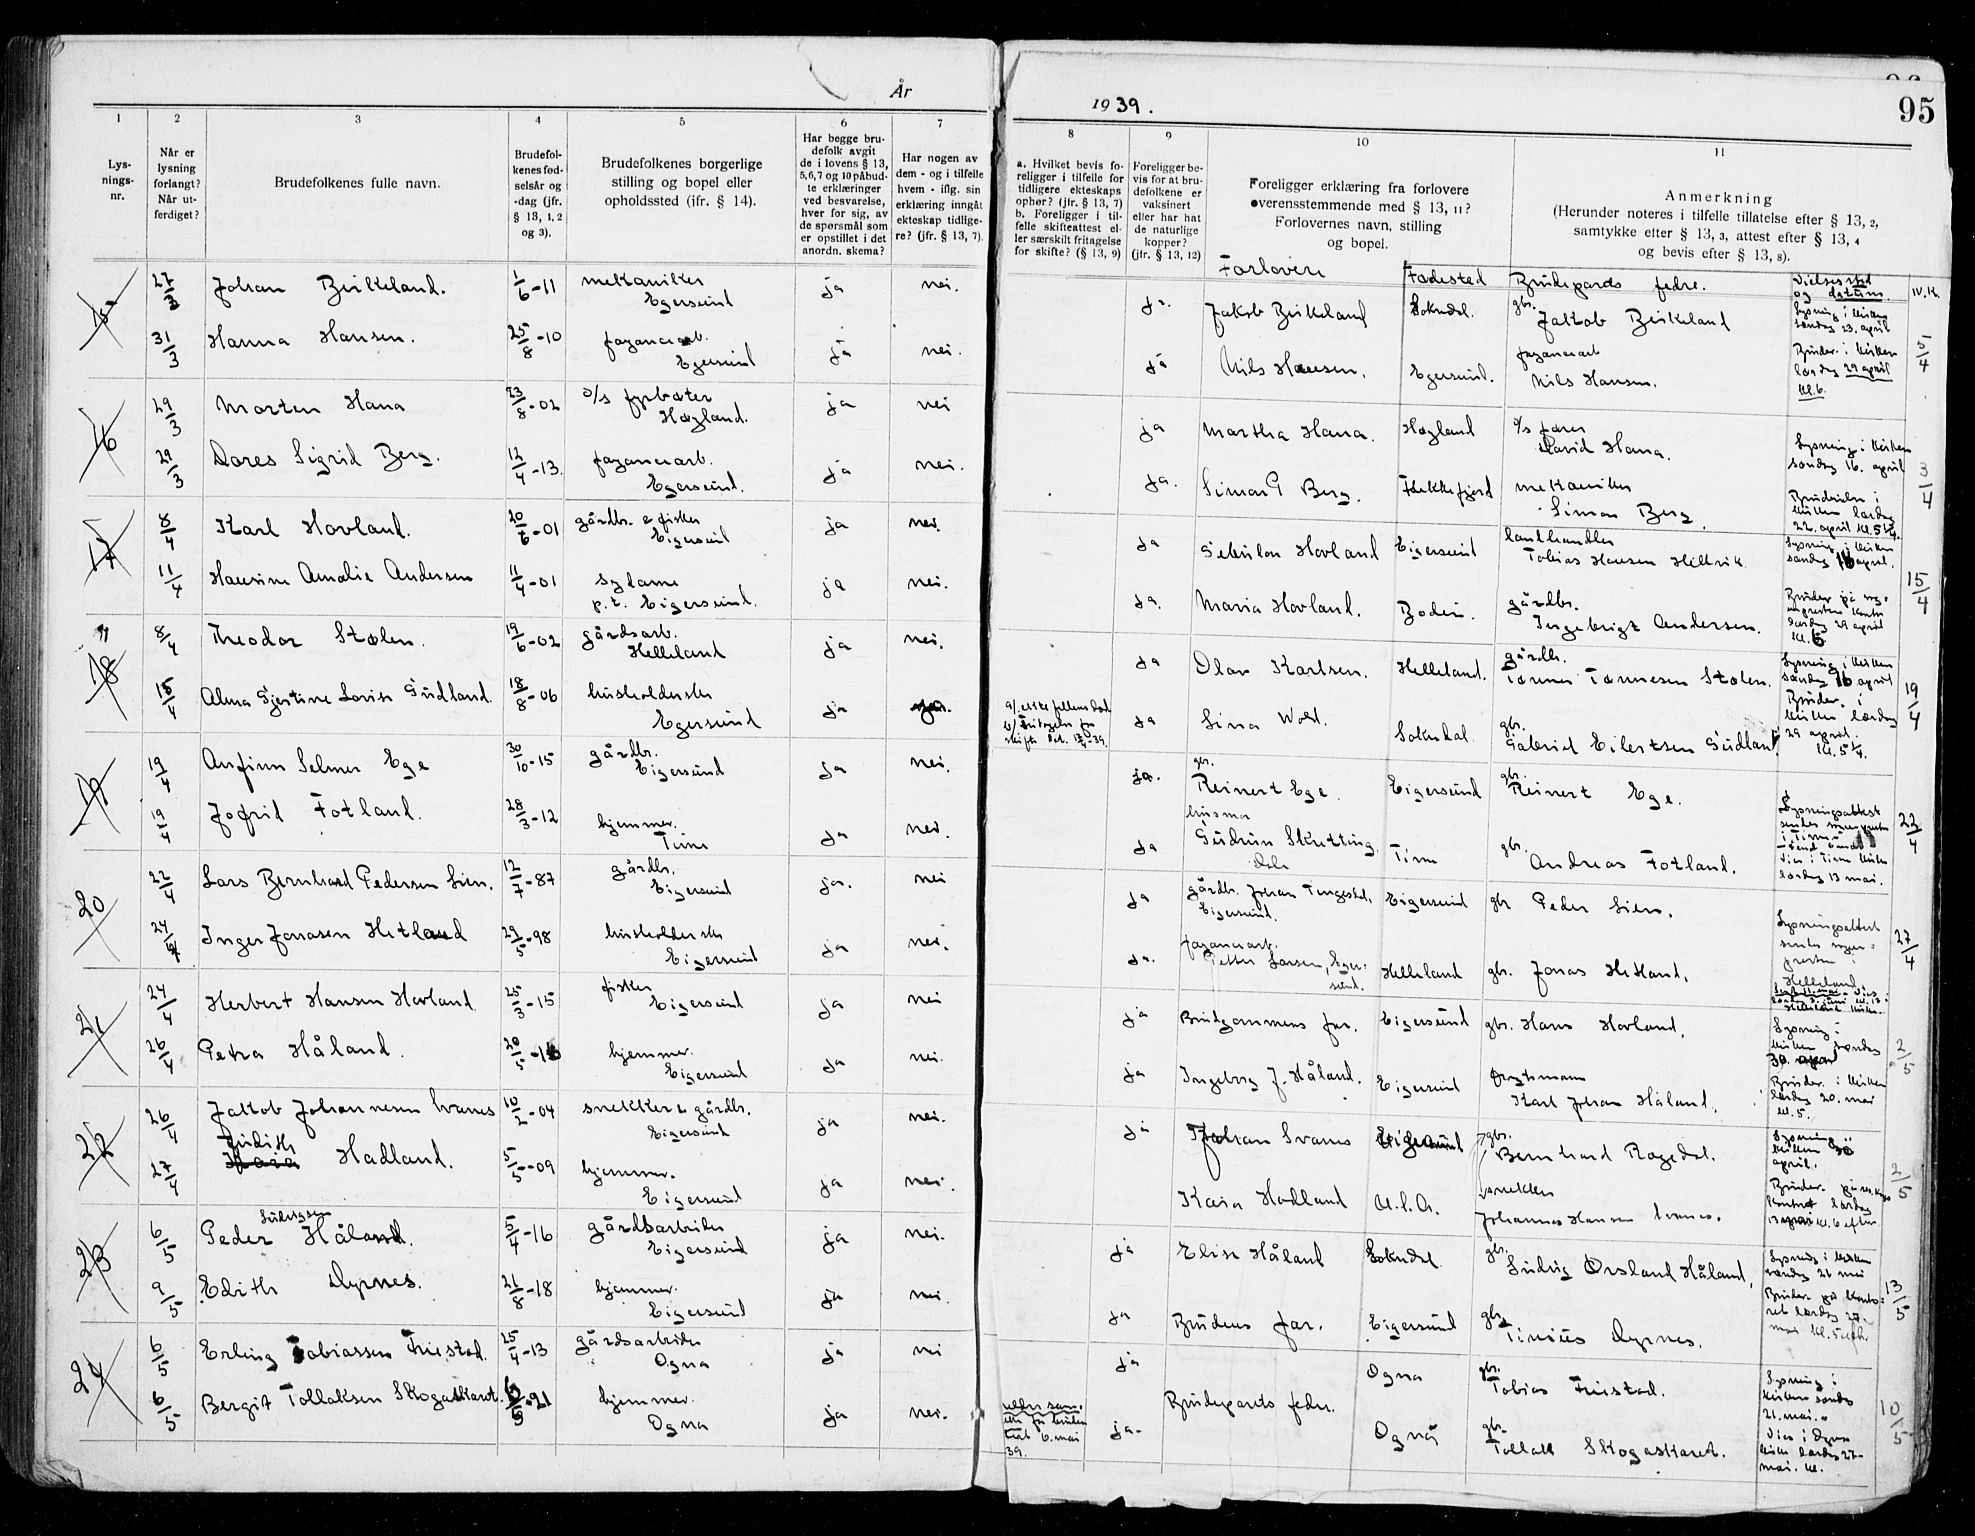 År
1939.
95
1
2
3
4
5
6
7
8
9
10
11
Lys-
nings-
nr.
Når er
lysning
forlangt?
Når ut-
ferdiget?
Brudefolkenes fulle navn.
Brudefol-
kenes fød-
selsår og
-dag (jfr.
§ 13, 1, 2
og 3).
Brudefolkenes borgerlige
stilling og bopel eller
opholdssted (ifr. § 14).
Har begge bru-
defolk avgit
de i lovens § 13,
5,6,7 og 10 påbud-
te erklæringer
ved besvarelse,
hver for sig, av
de spørsmål som
er opstillet i det
anordn. skema?
Har nogen av
dem - og i tilfelle
hvem - iflg. sin
erklæring inngåt
ekteskap tidlige-
re? (jfr. § 13, 7).
a. Hvilket bevis fo-
religger i tilfelle for
tidligere ekteskaps
ophør? (jfr. § 13, 7)
b. Foreligger i til-
felle skifteattest el-
ler særskilt fritagelse
for skifte? (§ 13, 9)
Foreligger be-
vis for at bru-
defolkene er
vaksinert
eller har hat
de naturlige
kopper?
(jfr. § 13, 12)
Foreligger erklæring fra forlovere
overensstemmende med § 13, 11?
Forlovernes navn, stilling
og bopel.
Anmerkning
(Herunder noteres i tilfelle tillatelse efter § 13, 2,
samtykke efter § 13, 3, attest efter § 13, 4
og bevis efter § 13, 8).
Forlovere Fødested Brudeparets fedre. Vielsessted
og datum.
27/3 Johan Birkeland. 1/6-11 mekaniker
Egersund ja nei.
ja. Jakob Birkeland Sokndal. gbr. Jakob Birkeland Lysning i kirken
søndag 23. april
31/3 Hanna Hansen. 25/8-10 fayancearb.
Egersund ja nei.
ja Nils Hansen. Egersund. fayancearb
Nils Hansen. Bruder. i kirken
lørdag 29 april
kl. 6. 5/4
16 29/3 Morten Hana 23/8-02 o/s fyrbøter
Høyland. ja nei
ja Martha Hana. Høyland o/s fører
David Hana. Lysning i kirken
søndag 16. april 3/4
29/3 Dores Sigrid Berg. 12/4-13. fayancearb.
Egersund. ja nei.
ja. Simon Berg. Flekkefjord mekaniker
Simon Berg. Brudevielse i
kirken lørdag
22. april kl. 5 1/4.
17 8/4 Karl Hovland. 20/6-01 gårdbr. & fisker
Eigersund ja nei.
ja Sebulon Hovland Eigersund landhandler
Tobias Hansen Hellvik. Lysning i kirken
søndag 16 april. 15/4
11/4 Hansine Amalie Andersen 11/4-01 sydame
p.t. Eigersund. ja nei.
ja. Maria Hovland. Bodin. gårdbr.
Ingebrigt Andersen. lørdag 29 april
kl. 6
18 8/4 Theodor Stølen. 19/6-02 gårdsarb.
Helleland ja nei.
ja Olav Karlsen. Helleland. gårdbr.
Tønnes Tønnesen Stølen. Lysning i kirken
søndag 16 april 19/4
15/4 Alma Gjertine Lovise Gudland. 18/8-06 husholderske
Egersund ja
ja Lina Sokndal. gbr.
Gabriel Eilertsen Gudland Bruder. i
kirken lørdag
29 april.
kl. 5 1/4.
19 19/4 Anfinn Selmer Ege 30/10-15 gårdbr.
Eigersund ja nei.
ja. gbr.
Reinert Ege. Eigersund gbr.
Reinert Ege. 22/4
19/4 Jofrid Fotland. 28/3-12 hjemmev.
Time ja nei.
ja husmor
Gudrun Skretting. Time gbr. Andreas Fotland. Lysningsattest
Vies i Time kirke
lørdag 13 mai.
20 22/4 Lars Bernhard Pedersen Lien. 12/7-87 gårdbr.
Eigersund ja. nei
ja gårdbr. Johan Tengesdal,
Eigersund. Eigersund gbr Peder Lien.
24/4 Inger Jonasen Hetland 29/5-98 husholderske
Eigersund ja nei.
ja. fayancearb.
Petter Larsen, Eger-
sund. Helleland gbr. Jonas Hetland. Lysningsattest
Helleland 27/4
21 24/4 Herbert Hansen Hovland 25/3-15 fisker
Eigersund ja nei
ja Brudgommens far. Eigersund gbr. Hans Hovland. Lysning i
kirken søndag
30. april 2/5
26/4 Petra Håland. 20/5-1 hjemmev.
Eigersund ja nei.
ja Ingeborg J. Håland. Eigersund
Karl Johan Håland. Bruder. i kirken
lørdag 20. mai
kl. 5.
22 26/4 Jakob Johannesen Svanes 10/2-04 snekker & gårdbr.
Eigersund ja nei.
ja Johan Svanes Eigersund gbr.
Bernhard Rogedal. Lysning i
kirken 30
april. 2/5
27/4 Judith Hadland. 5/5-09 hjemmev.
Eigersund ja nei.
Kaia Hadland U.S.A. snekker
Johannes Hansen Svanes.
23 6/5 Peder Ludvigsen Håland. 5/4-16 gårdsarbeider
Eigersund ja nei.
ja Elise Håland Sokndal gbr.
Ludvig Ørsland Håland, Lysning i kirken
søndag 21 mai 13/5
9/5 Edith Dyrnes. 21/8-18 hjemmev.
Eigersund ja nei.
ja Brudens far. Eigersund gbr
Tinius Dyrnes. Bruder på konto-
ret lørdag 27-
mai kl. 5 eftr.
24 6/5 Erling Tobiassen Friestad. 25/4-13 gårdsarbeider
Ogna ja nei
ja Ogna gbr.
Tobias Friestad. Lysning i
kirken søndag
21. mai. 10/5
6/5 Bergit Tollaksen Skogaskaret. -21 hjemmev.
Ogna ja nei.
ja- Brudeparets fedre. Ogna gbr.
Tollak Skogaskaret. Vies i Ogna
kirke lørdag 27-
mai. kl.